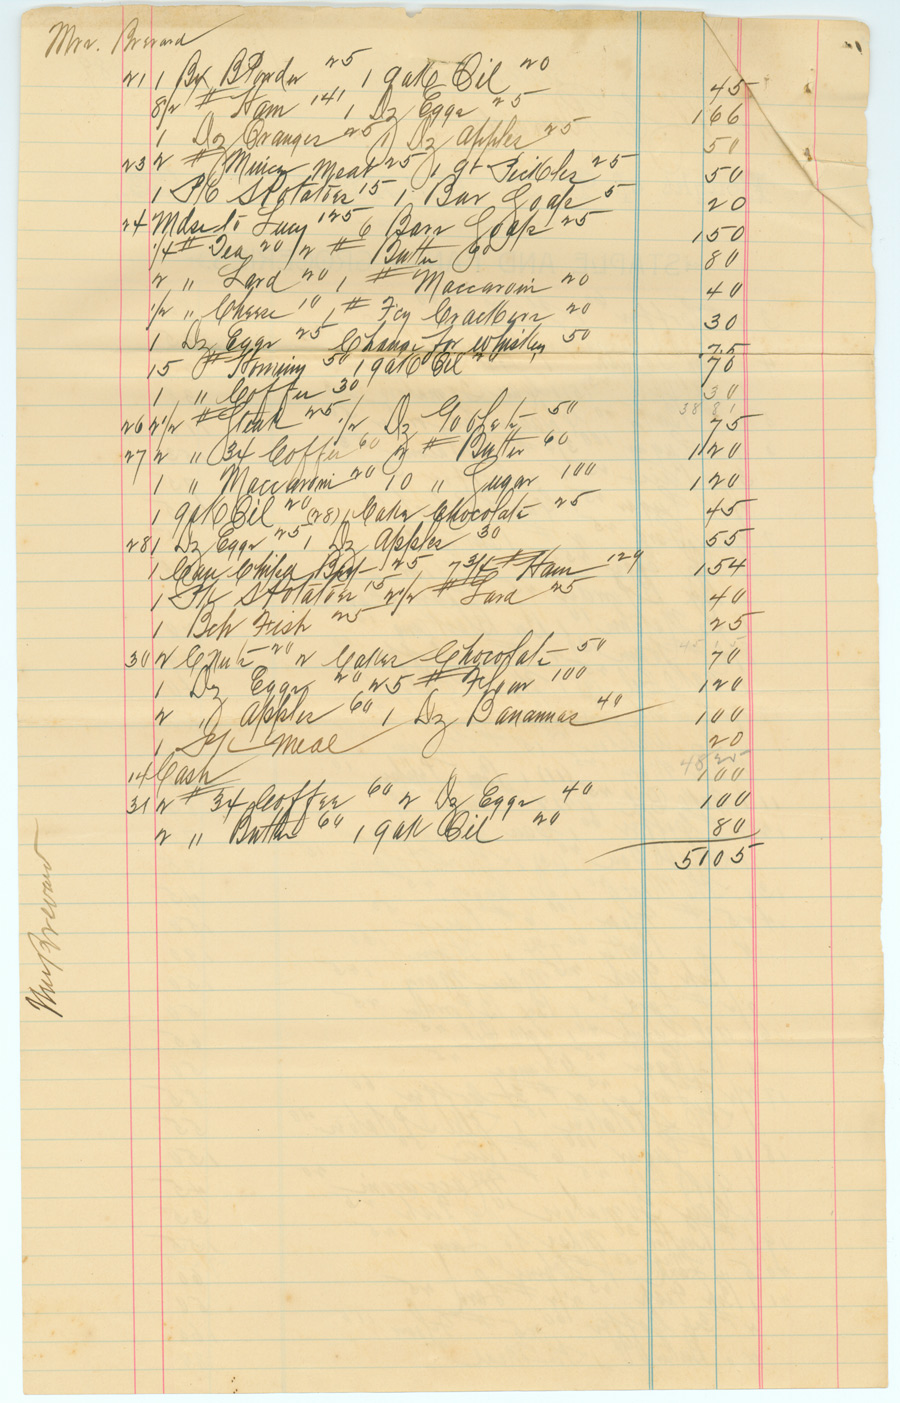 Mrs. Brevard
21 1 Bx BPowder 25 1 gall Oil 20 45
8 1/2 # Ham 141 1 Dz Eggs 25 166
1 Dz Oranges 25 1 Dz apples 25 50
23 2 # Mince Meat 25 1 qt Pickles 25 50
1 Pk SPotatoes 15 1 Bar Soap 5 20
24 Mdse to Lucy 125 6 Bars Soap 25 150
1/4 # Tea 20 1/2 # Butter 60 80
2 " Lard 20 1 # Maccaroni 20 40
1/2 " Cheese 10 1 # Fcy Crackers 20 30
1 Dz Eggs 25 Change for whiskey 50 75
15 # Hominy 50 1 gall Oil 20 70
1 " Coffee 30 30
38 81
26 2 1/2 # Steak 25 1/2 Dz Goblets 50 75
27 2 " 34 Coffee 60 2 # Butter 60 120
1 " Maccaroni 20 10 " Sugar 100 120
1 gall Oil 20 (28) 1 Cake Chocolate 25 45
28 1 Dz Eggs 25 1 Dz apples 30 55
1 Can Beef 25 7 3/4 # Ham 129 154
1 Pk SPotatoes 15 2 1/2 # Lard 25 40
1 Bch Fish 25 25
30 2 20 2 Cakes Chocolate 50 70
1 Dz Eggs 20 25 # Flour 100 120
2 " apples 60 1 Dz Banannas 40 100
1 Pk meal 20
48
14 Cash 100
31 2 # 34 Coffee 60 2 Dz Eggs 40 100
2 " Butter 60 1 gall Oil 20 80
5105
Mrs Brevard